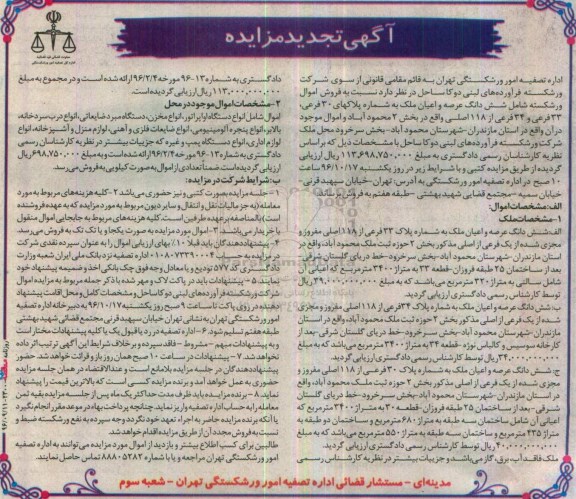 آگهی تجدید مزایده
اداره تصفیه امور ورشکستگی تهران به قائم مقامی قانونی از سوی شرکت
ورشکسته فرآورده‌های لبنی دوکا ساحل در نظر دارد نسبت به فروش اموال
ورشکسته شامل شش دانگ عرصه و اعیان ملک به شماره پلاکهای ۳۰ فرعی،
۳۳ فرعی و ۳۴ فرعی از ۱۱۸ اصلی واقع در بخش ۲ محمود آباد و اموال موجود
در آن واقع در استان مازندران-شهرستان محمود آباد-بخش سرخرود محل ملک
شرکت ورشکسته فرآورده‌های لبنی دوکا ساحل با مشخصات ذیل که براساس
نظریه کارشناسان رسمی دادگستری به مبلغ ۱۱۳,۶۹۸,۷۵۰,۰۰۰ ریال ارزیابی
گردیده از طریق مزایده کتبی و با شرایط زیر در روز یکشنبه ۹۶/۱۰/۱۷ ساعت
۱۰ صبح در اداره تصفیه امور ورشکستگی به آدرس: تهران-خیابان سپهبد قرنی-
خیابان سمیه-مجتمع قضایی شهید بهشتی - طبقه هفتم به فروش برساند.
الف: مشخصات اموال:
۱-مشخصات ملک
الف: شش دانگ عرصه و اعیان ملک به شماره پلاک ۳۳ فرعی از ۱۱۸ اصلی مفروز و
مجزی شده از یک فرعی از اصلی مذکور بخش ۲ حوزه ثبت ملک محمود آباد، واقع در
استان مازندران-شهرستان محمود آباد-بخش سرخرود-خط دریای گلستان شرقی-
بعد از ساختمان ۲۵ طبقه فروزان-قطعه ۳۳ به متراژ ۳۴۰۰ مترمربع که اعیانی آن
شامل سالنی به متراژ ۳۲۰ مترمربع می‌باشد که به مبلغ ۳۹,۰۰۰,۰۰۰,۰۰۰ ریال
توسط کارشناس رسمی دادگستری ارزیابی گردید.
ب: شش دانگ عرصه و اعیان ملک به شماره پلاک ۳۴ فرعی از ۱۱۸ اصلی مفروز و مجزی
شده از یک فرعی از اصلی مذکور بخش ۲ حوزه ثبت ملک محمود آباد واقع در استان
مازندران-شهرستان محمود آباد-بخش سرخرود-خط دریای گلستان شرقی-بعد از
کارخانه سوسیس و کالباس نوژه-قطعه ۳۴ به متراژ ۳۴۰۰ مترمربع می‌باشد که به مبلغ
۳۴,۰۰۰,۰۰۰,۰۰۰ ریال توسط کارشناس رسمی دادگستری ارزیابی گردید.
ج: شش دانگ عرصه و اعیان ملک به شماره پلاک ۳۰ فرعی از ۱۱۸ اصلی مفروز و
مجزی شده از یک فرعی از اصلی مذکور بخش ۲ حوزه ثبت ملک محمود آباد، واقع
در استان مازندران-شهرستان محمود آباد-بخش سرخرود-خط دریای گلستان
شرقی-بعد از ساختمان ۲۵ طبقه فروزان-قطعه ۳۰ به متراژ ۳۴۰۰ مترمربع که
اعیانی آن شامل ساختمان سه طبقه به متراژ ۶۸۰ مترمربع و ساختمان دو طبقه به
متراژ ۲۴۵ مترمربع و ساختمان سه طبقه به متراژ ۵۵۰ مترمربع می‌باشد که به مبلغ
۴۰,۰۰۰,۰۰۰,۰۰۰ ریال توسط کارشناس رسمی دادگستری ارزیابی گردید.
ملک فاقد آب، برق، گاز می‌باشد و جزییات بیشتر در نظریه کارشناس رسمی
دادگستری به شماره ۱۳-۹۶ مورخه ۹۶/۲/۴ ارائه شده است و در مجموع به مبلغ
۱۱۳,۰۰۰,۰۰۰,۰۰۰ ریال ارزیابی گردیده است.
۲-مشخصات اموال موجود در محل
اموال شامل انواع دستگاه اواپراتور، انواع مخزن، دستگاه میز ضایعاتی، انواع درب سردخانه،
بالابر، انواع پنجره آلومینیومی، انواع ضایعات فلزی و آهنی، لوازم منزل و آشپزخانه، انواع
لوازم اداری، انواع دستگاه پمپ و غیره که جزییات بیشتر در نظریه کارشناسان رسمی
دادگستری به شماره ۱۳-۹۶ مورخه ۹۶/۲/۴ ارائه شده است و به مبلغ ۶۹۸,۷۵۰,۰۰۰ ریال
ارزیابی گردیده است. ضمناً تعدادی از اموال به صورت کیلویی به فروش می‌رسد.
ب: شرایط شرکت در مزایده:
۱-جلسه مزایده بصورت کتبی و نیز حضوری می‌باشد ۲-کلیه هزینه‌های مربوط به مورد
معامله (به جز مالیات نقل و انتقال و سایر دیون مربوط به مورد مزایده که به عهده فروشنده
است) بالمناصفه بر عهده طرفین است. کلیه هزینه‌های مربوط به جابجایی اموال منقول
با خریدار می‌باشد. ۳-اموال مورد مزایده به صورت یکجا و یا تک تک به فروش می‌رسد.
۴-پیشنهاددهندگان باید قبلا ۱۰٪ بهای ارزیابی اموال را به عنوان سپرده نقدی شرکت
در مزایده به حساب اداره تصفیه نزد بانک ملی ایران شعبه وزارت
دادگستری کد ۵۷۷ تودیع و یا معادل وجه فوق چک بانکی اخذ و ضمیمه پیشنهاد خود
نمایند. ۵-پیشنهادات باید در پاکت لاک و مهر شده با ذکر جمله مربوط به مزایده اموال
شرکت ورشکسته فرآورده‌های لبنی دوکا ساحل و مشخصات کامل و محل اقامت پیشنهاد
دهنده در روی پاکت تا ساعت ۹ صبح روز یکشنبه ۹۶/۱۰/۱۷ به دبیرخانه اداره تصفیه
امور ورشکستگی تهران به نشانی تهران خیابان سپهبد قرنی مجتمع قضائی شهید بهشتی
طبقه هفتم تسلیم شود. ۶-اداره تصفیه در رد یا قبول یک یا کلیه پیشنهادات مختار است
و به پیشنهادات مبهم - مشروط - فاقد سپرده و بر خلاف شرایط این آگهی ترتیب اثر داده
نخواهد شد. ۷-پیشنهادات در ساعت ۱۰ صبح همان روز باز و قرائت خواهد شد. حضور
پیشنهاددهندگان در جلسه مزایده بلامانع است و عندالاقتضاء در همان جلسه مزایده
حضوری به عمل خواهد آمد و برنده مزایده کسی است که بالاترین قیمت را پیشنهاد
نماید. ۸-برنده مزایده باید ظرف مدت حداکثر یک ماه پس از جلسه مزایده بقیه ثمن
معامله را به حساب اداره تصفیه واریز نماید. چنانچه پرداخت بهاء در موعد مقرر انجام نگیرد
یا آنکه برنده مزایده حاضر به اجراء تعهد خود نگردد وجه سپرده به نفع ورشکسته ضبط و
نسبت به فروش مجدد آن از طریق مزایده اقدام خواهد شد.
طالبین برای کسب اطلاع بیشتر و بازدید از اموال مورد مزایده می‌توانند به اداره تصفیه
امور ورشکستگی تهران مراجعه و یا با شماره ۸۸۸۰۵۲۸۲ تماس حاصل نمایند.
مدینه‌ای - مستشار قضائی اداره تصفیه امور ورشکستگی تهران - شعبه سوم